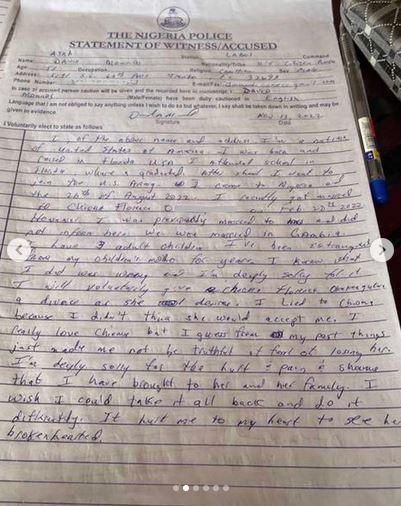 THE NIGERIA POLICE
STATEMENT OF WITNESS/ACCUSED
Station LAGOS Command
Name: DAVID Nationality/Tribe U.S. Citizen
Age 52 Occupation Religion Christian Sex Male
Address:
Phone Number: E-mail
In case of accused person caution will be given and the recorded here in including I DAVID
(Male/Female) have been duly cautioned in English
Language that I am not obliged to say anything unless I wish to do so but whatever, I say shall be taken down in writing and may be
given in evidence
Signature NOV 13, 2022 Date
I Voluntarily elect to state as follows
I of the above name and address I am a native
of United States of America I was born and
raised in Florida USA I attended school in
Florida where I graduated After school I went to
join the U.S. Army I came to Nigeria on
the August 2022. I recently got married
to Chioma Florence
However, I was previously married to and did
not inform her. We were married in
I have 3 adult children I've been estranged
from my children's mother for years. I know what
I did was wrong and I'm deeply sorry for it
I will voluntarily give Chioma Florence
a divorce as she desires. I lied to Chioma
because I didn't think she would accept me. I
really love Chioma but I guess from my past things
just made me not be truthful if fear of losing her.
I'm deeply sorry for the hurt & pain & shame
that I have brought to her and her family. I
wish I could take it all back and do it
differently. It hurt me to my heart to see her
brokenhearted